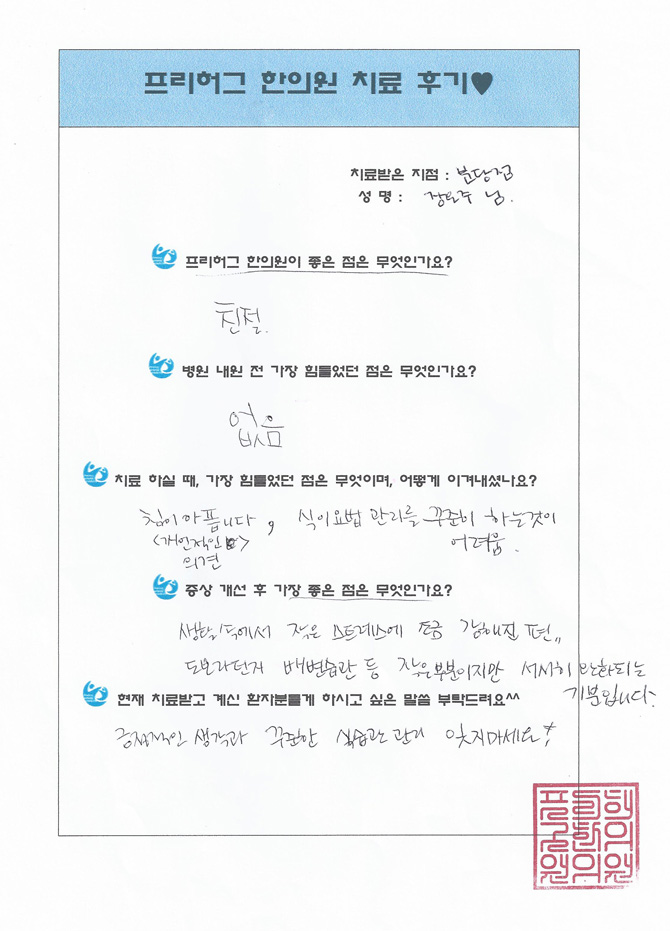 프리허그 한의원 치료 후기♥
치료받은 지점 : 분당점
성 명 : 님.
프리허그 한의원이 좋은 점은 무엇인가요?
친절.
병원 내원 전 가장 힘들었던 점은 무엇인가요?
없음
치료 하실 때, 가장 힘들었던 점은 무엇이며, 어떻게 이겨내셨나요?
침이 아픕니다, 식이요법 관리를 꾸준히 하는것이
<개인적인> 어려움.
의견
증상 개선 후 가장 좋은 점은 무엇인가요?
작은 스트레스에 조금 강해진 편,,
배변습관 등 작은부분이지만 서서히 완화되는
기분입니다.
현재 치료받고 계신 환자분들게 하시고 싶은 말씀 부탁드려요^^
긍정적인 생각과 꾸준한 식습관 관리 잊지마세요!